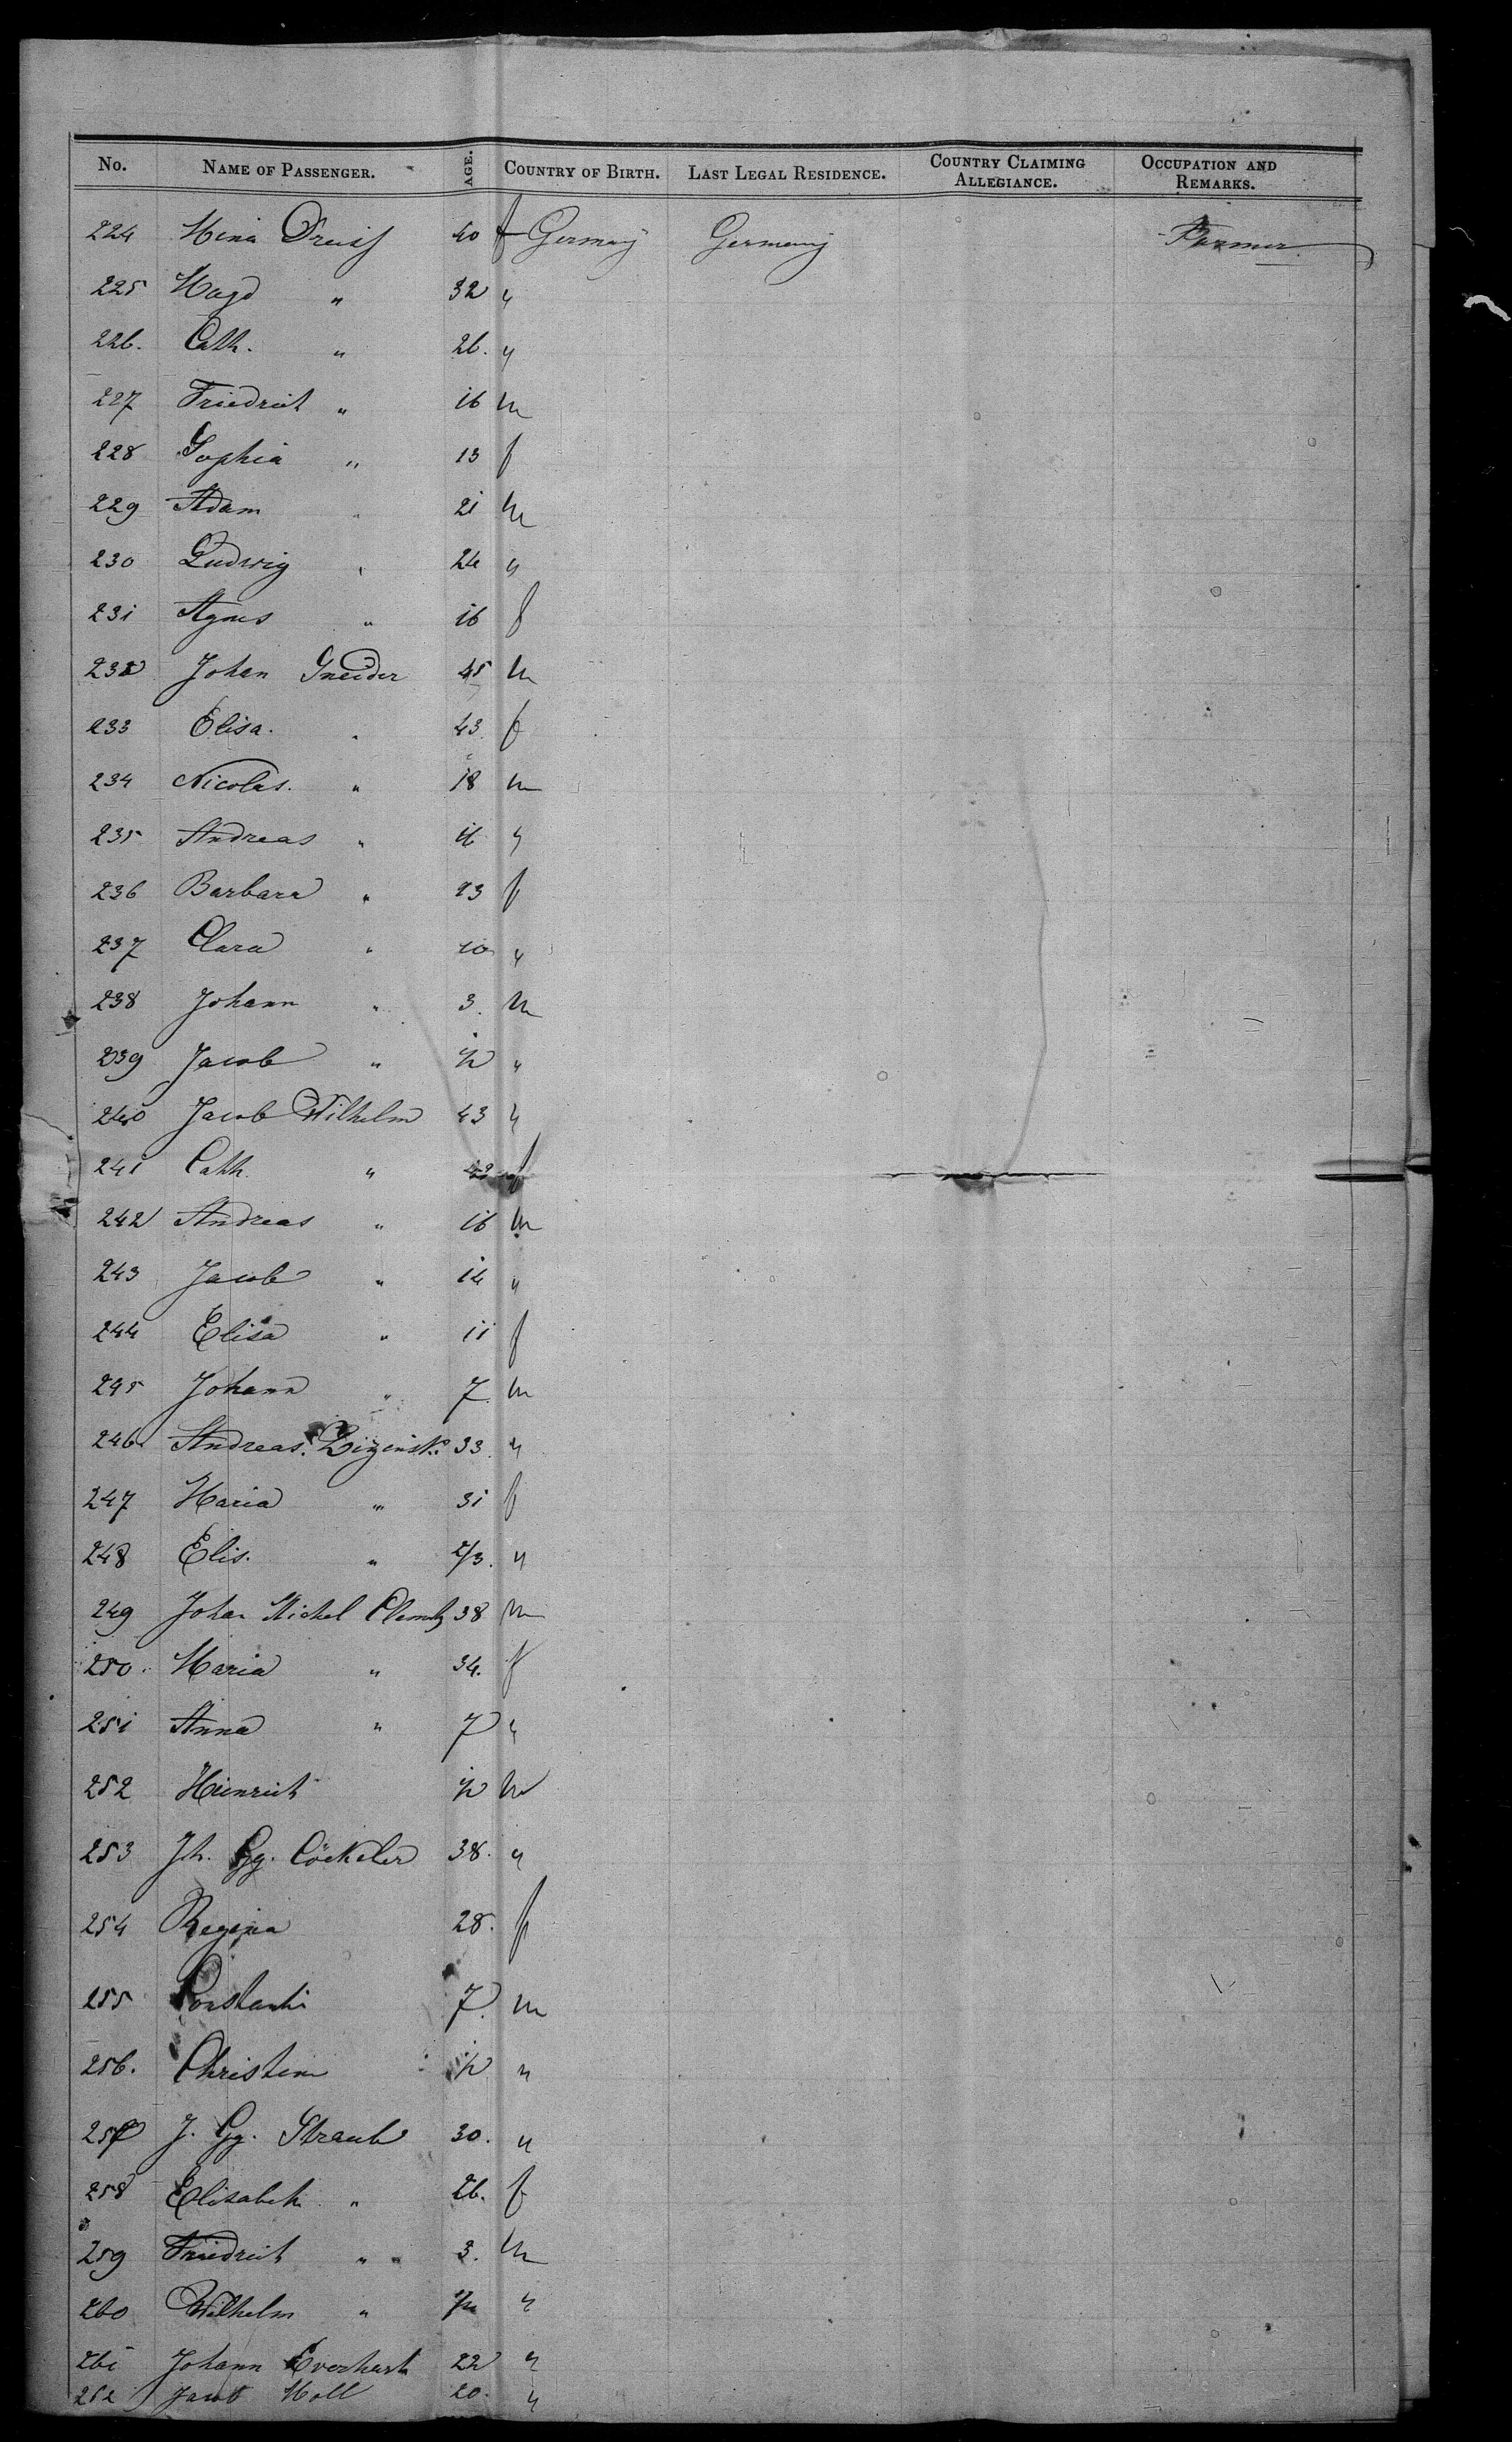 No. NAME OF PASSENGER. AGE. COUNTRY OF BIRTH. LAST LEGAL RESIDENCE. COUNTRY CLAIMING ALLEGIANCE. OCCUPATION AND REMARKS.
224 Mina Dreiss 40 f Germany Germany Farmer
225 Magd " 32 "
226. Cath. " 26. "
227 Friedrich " 16 m
228 Sophia " 13 f
229 Adam " 21 m
230 Ludwig " 24 "
231 Agnes " 16 f
232 Johan Sneider 45 m
233 Elisa. " 43 f
234 Nicolas. " 18 m
235 Andreas " 16 "
236 Barbara " 13 f
237 Clara " 10 "
238 Johann " 3. m
239 Jacob " ½ "
240 Jacob Wilhelm 43 "
241 Cath. " 42 f
242 Andreas " 16 m
243 Jacob " 14 "
244 Elisa " 11 f
245 Johann " 7 m
246 Andreas. 33. "
247 Maria " 31 f
248 Elis. " 2/3. "
249 Johan Michel 38 m
250. Maria " 34. f
251 Anna " 7 "
252 Heinrich ½ m
253 Jh. Gg. Cöckeler 38. "
254 Regina 28. f
255 Constanti 7. m
256. Christian ½ "
257 J. Gg. Straub 30. "
258 Elisabeth " 26. f
259 Friedrich " " 3. m
260 Wilhelm " "
261 Johann Everhart 22 "
262 Jacob Moll 20. "